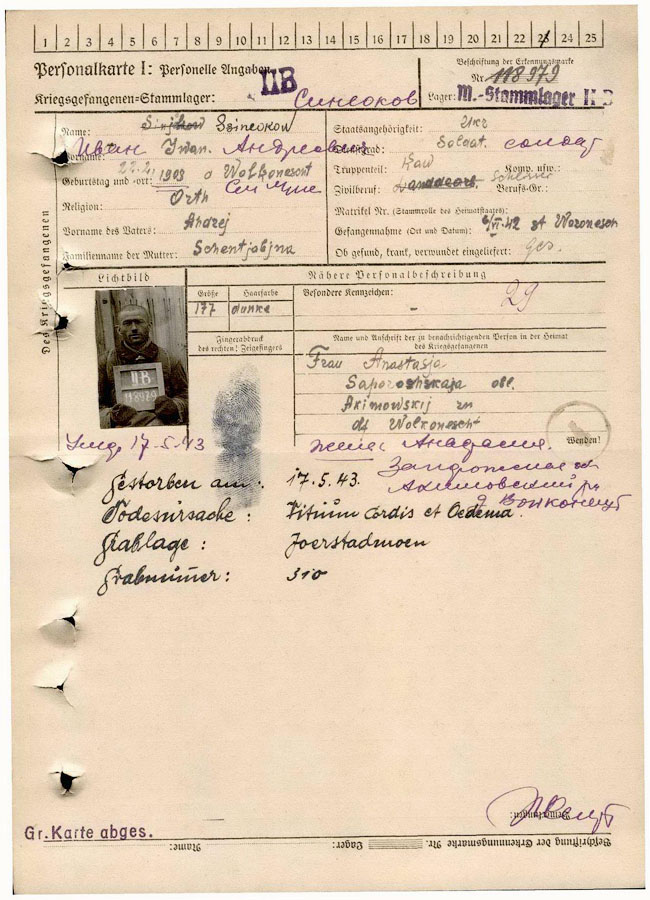 1 2 3 4 5 6 7 8 9 10 11 12 13 14 15 16 17 18 19 20 21 22 23 24 25
Personalkarte I: Personelle Angaben
II B
Beschriftung der Erkennungsmarke
Nr. 118979
Kriegsgefangenen-Stammlager: Синеоков
Lager: M.-Stammlager II B
Des Kriegsgefangenen
Name: Ssineokow
Staatsangehörigkeit: Ukr
Иван Iwan. Андреевич
Vorname:
Dienstgrad: Soldat. солдат
Truppenteil:
Komp. usw.:
Geburtstag und -ort: 22.2. 1903 Wolkonescht
Zivilberuf:
Berufs-Gr.:
Religion: Orth
Matrikel Nr. (Stammrolle des Heimatstaates):
Vorname des Vaters: Andrej
Gefangennahme (Ort und Datum): VII.42 Woronesch
Familienname der Mutter:
Ob gesund, krank, verwundet eingeliefert: ges.
Lichtbild
Nähere Personalbeschreibung
Größe
Haarfarbe
Besondere Kennzeichen: –
29
177
dunkel
II B
118979
Fingerabdruck
des rechten! Zeigefingers
Name und Anschrift der zu benachrichtigenden Person in der Heimat
des Kriegsgefangenen
Frau Anastasja
Saporoshskaja obl.
Akimowskij
df Wolkonescht
Wenden!
17.5.43
жена Анастасия.
Акимовский
Gestorben am: 17.5.43.
Todesursache: Vitium Cordis et Oedema.
Grablage: Joerstadmoen
Grabnummer: 310
Bemerkungen:
Gr. Karte abges.
Beschriftung der Erkennungsmarke Nr.
Lager:
Name: